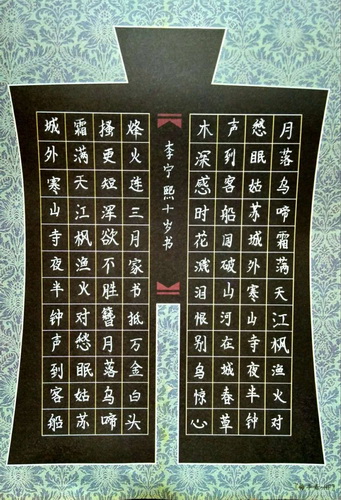 月落乌啼霜满天江枫渔火对
愁眠姑苏城外寒山寺夜半钟
声到客船国破山河在城春草
木深感时花溅泪恨别鸟惊心
李宁熙十岁书
烽火连三月家书抵万金白头
搔更短浑欲不胜簪月落乌啼
霜满天江枫渔火对愁眠姑苏
城外寒山寺夜半钟声到客船